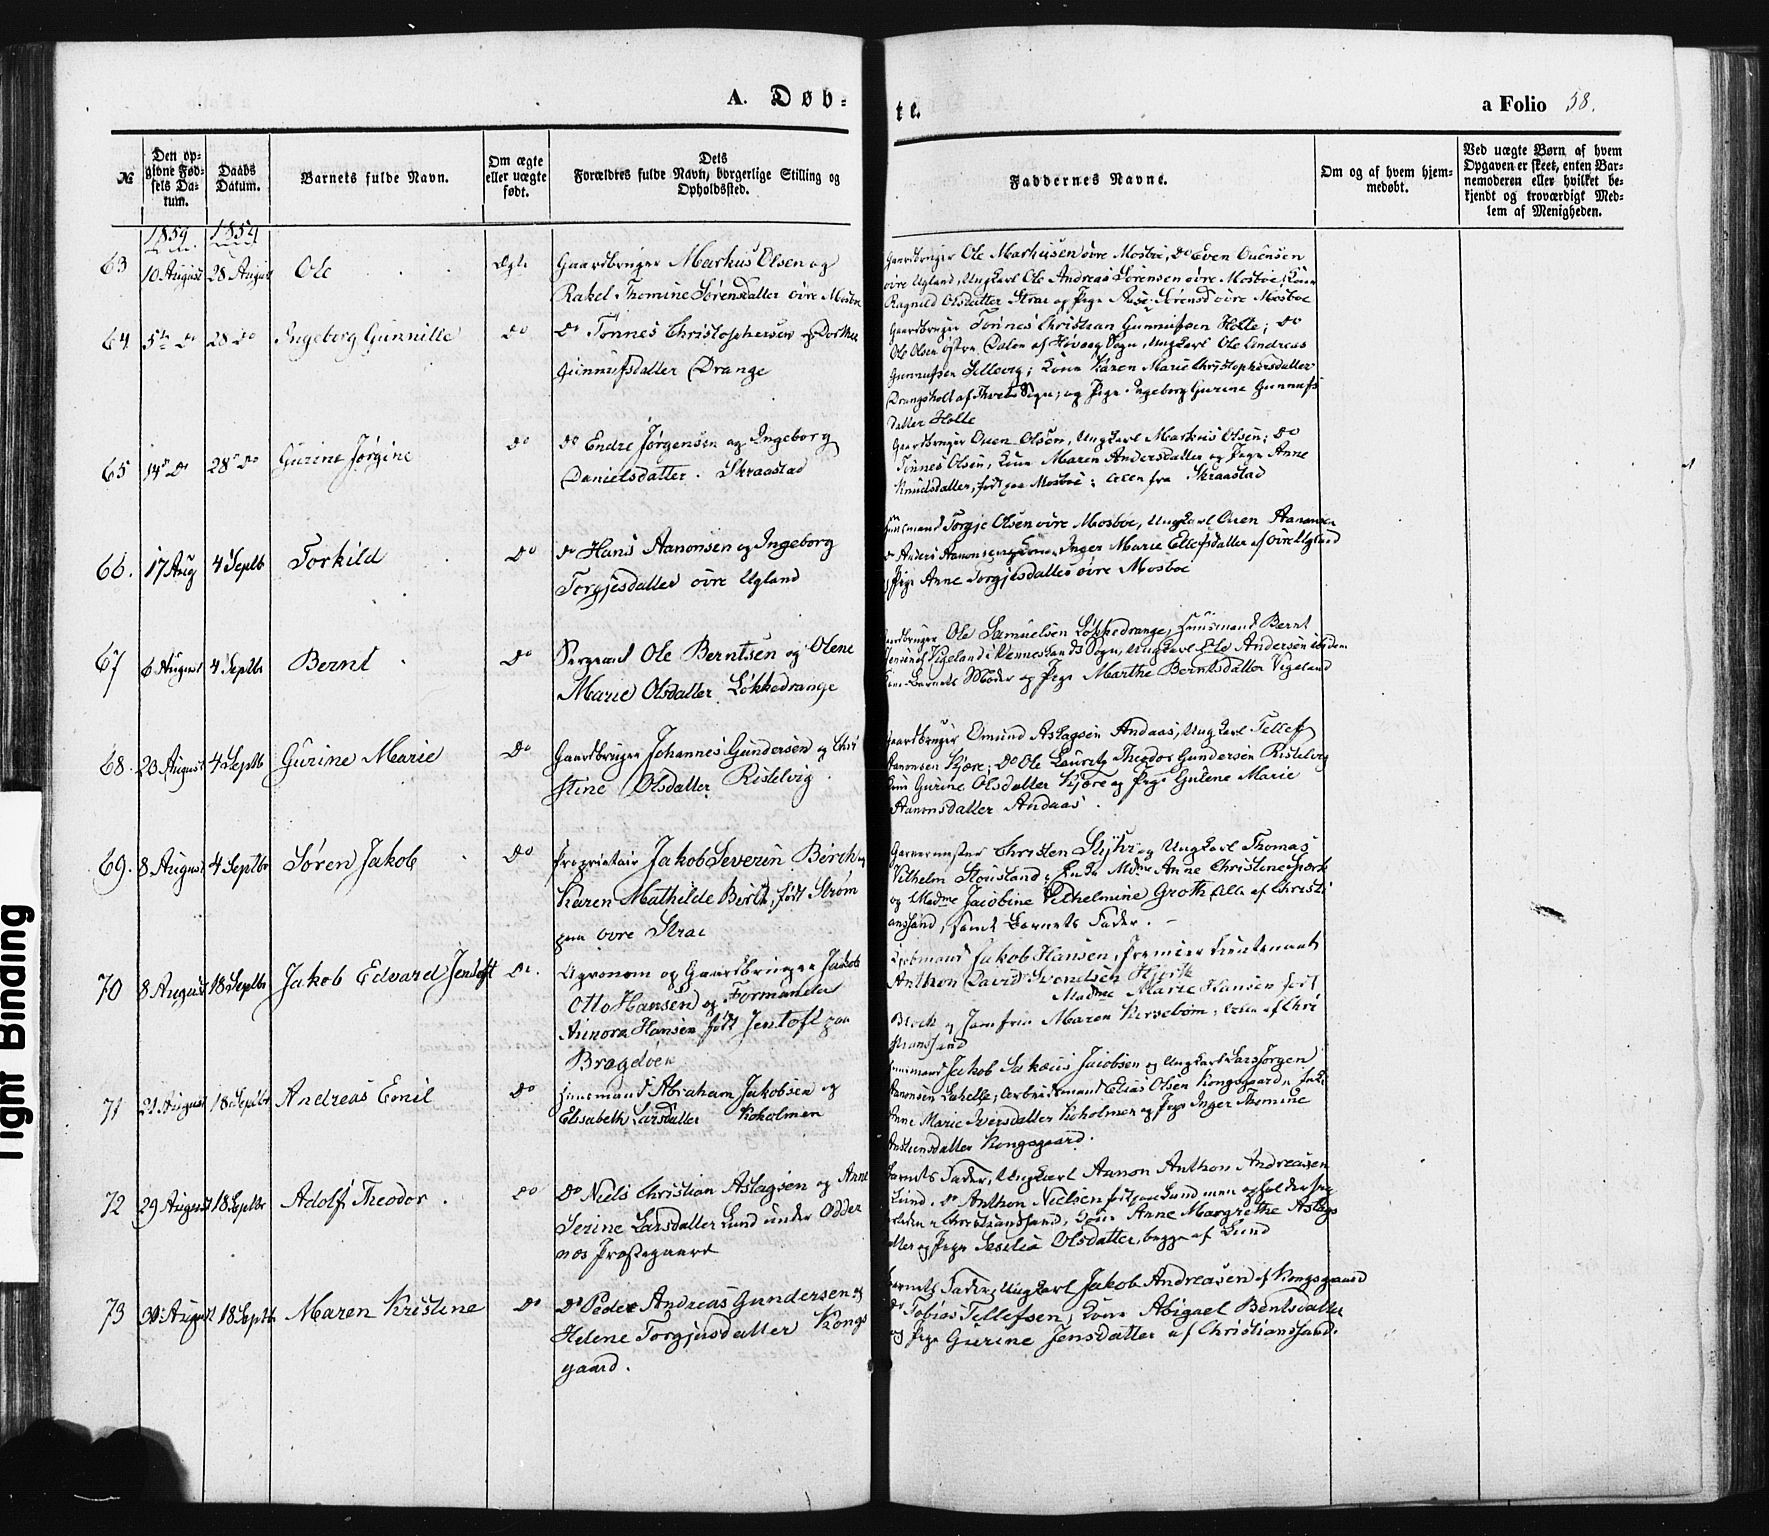 A. Døb-
te.
a Folio 58.
№
Den op-
givne Fød-
sels Da-
tum.
Daabs
Datum.
Barnets fulde Navn.
Om ægte
eller uægte
født.
Dets
Forældres fulde Navn, borgerlige Stilling og
Opholdssted.
Faddernes Navne.
Om og af hvem hjem-
medøbt.
Ved uægte Børn af hvem
Opgaven er skeet, enten Bar-
nemoderen eller hvilket be-
kjendt og troværdigt Med-
lem af Menigheden.
1859
1859
63
10 August
28 August
Ole
Ægte
Gaardbruger Markus Olsen og
Rakel Thomine Sørensdatter øvre Mosbø
Gaardbruger Ole Markusen øvre Mosbø, do Even Ouensen
øvre Ugland, Ungkarl Ole Andreas Sørensen øvre Mosbø, Kone
Ragnild Olsdatter Strai og Pige Aase Sørensd øvre Mosbø
64
5te do
28 do
Ingeborg Gunnille
do
do Tønnes Christophersen og Dorthea
Gunnufsdatter Drange
Gaardbruger Tønnes Christian Gunnufsen Holte; do
Ole Olsen østre Dalen af Høvaag Sogn, Ungkarl Ole Andreas
Gunnufsen Sellevig; Kone Karen Marie Christophersdatter
Drangsholt af Tveit Sogn; og Pige Ingeborg Gurine Gunnufs
datter Holte
65
14de do
28de do
Gurine Jørgine
do
do Endre Jørgensen og Ingeborg
Danielsdatter. Skraastad
Gaardbruger Ouen Olsen, Ungkarl Markus Olsen; do
Tønnes Olsen, Kone Maren Andersdatter og Pige Anne
Knudsdatter, født paa Mosbø; alle fra Skraastad
66.
17 Aug
4 Septb
Torkild
do
do Hans Aanonsen og Ingeborg
Torgjesdatter øvre Ugland
Huusmand Torgje Olsen øvre Mosbø, Ungkarl Ouen Aanonsen
do Anders Aanonsen og Kone Inger Marie Ellefsdatter af øvre Ugland
og Pige Anne Torgjesdatter øvre Mosbø
67
6 August
4 Septbr
Bernt
do
Sergeant Ole Berntsen og Olene
Marie Olsdatter Løkkedrange
Gaardbruger Ole Samuelsen Løkkedrange, Huusmand Bernt
Jensen af Vigeland i Vennesland Sogn, Ungkarl Ole Andersen ibidem
Kone Barnets Moder og Pige Marthe Berntsdatter Vigeland
68.
23 August
4 Septb
Gurine Marie
do
Gaardbruger Johannes Gundersen og Chri
stine Olsdatter Ristelvig
Gaardbruger Omund Aslagsen Andaas, Ungkarl Tellef
Aanonsen Kjære; do Ole Lauritz Theodor Gundersen Ristelvig
Kone Gurine Olsdatter Kjære og Pige Gulene Marie
Aanonsdatter Andaas
69.
8 August
4 Septbr
Søren Jakob
do
Proprietair Jakob Severin Berck og
Karen Mathilde Berck, født Strøm
paa øvre Strai
Garvermester Christen Slyhr og Ungkarl Thomas
Vilhelm Stousland, Enke Mdme Anne Christine Spærk
og Madme Jacobine Vilhelmine Groth, alle af Christi
anssand, samt Barnets Fader.
70
8 August
18 Septbr
Jakob Edvard Jentoft
do.
Agronom og Gaardbruger Jakob
Otto Hansen og Formunda
Aurora Hansen født Jentoft paa
Bragdøen
Kjøbmand Jakob Hansen, Premier Lieutenant
Anthon David Svendsen Hjorth
Madme Marie Hansen født
Berck og Jomfru Maren Kirsebom, alle af Chri
stianssand
71
21 August
18 Septbr
Andreas Emil
do
Huusmand Abraham Jakobsen og
Elisabeth Larsdatter Kokolmen
Huusmand Jakob Sakæus Jacobsen og Ungkarl Lars Jørgen
Aanonsen Sahelle, Arbeidsmand Elias Olsen Kongsgaard, Enke
Anne Marie Iversdatter Kokolmen og Pige Inger Thomine
Austensdatter Kongsgaard.
72
29 August
18 Septbr
Adolf Theodor
do
do Niels Christian Aslagsen og Anne
Serine Larsdatter Lund under Odder
næs Præstegaard
Barnets Fader, Ungkarl Aanon Anthon Andreasen
Lund, do Anthon Nielsen født paa Lund men opholder sig
Christianssand, Kone Anne Margrethe Aslags
datter og Pige Seselia Olsdatter, begge af Lund
73
30 August
18 Septb
Maren Kristine
do
do Peder Andreas Gundersen og
Helene Torgjersdatter Kongs
gaard.
Barnets Fader, Ungkarl Jakob Andreasen af Kongsgaard
do Tobias Tellefsen, Kone Abigael Berntsdatter
og Pige Gurine Jensdatter af Christianssand.
Tight Binding